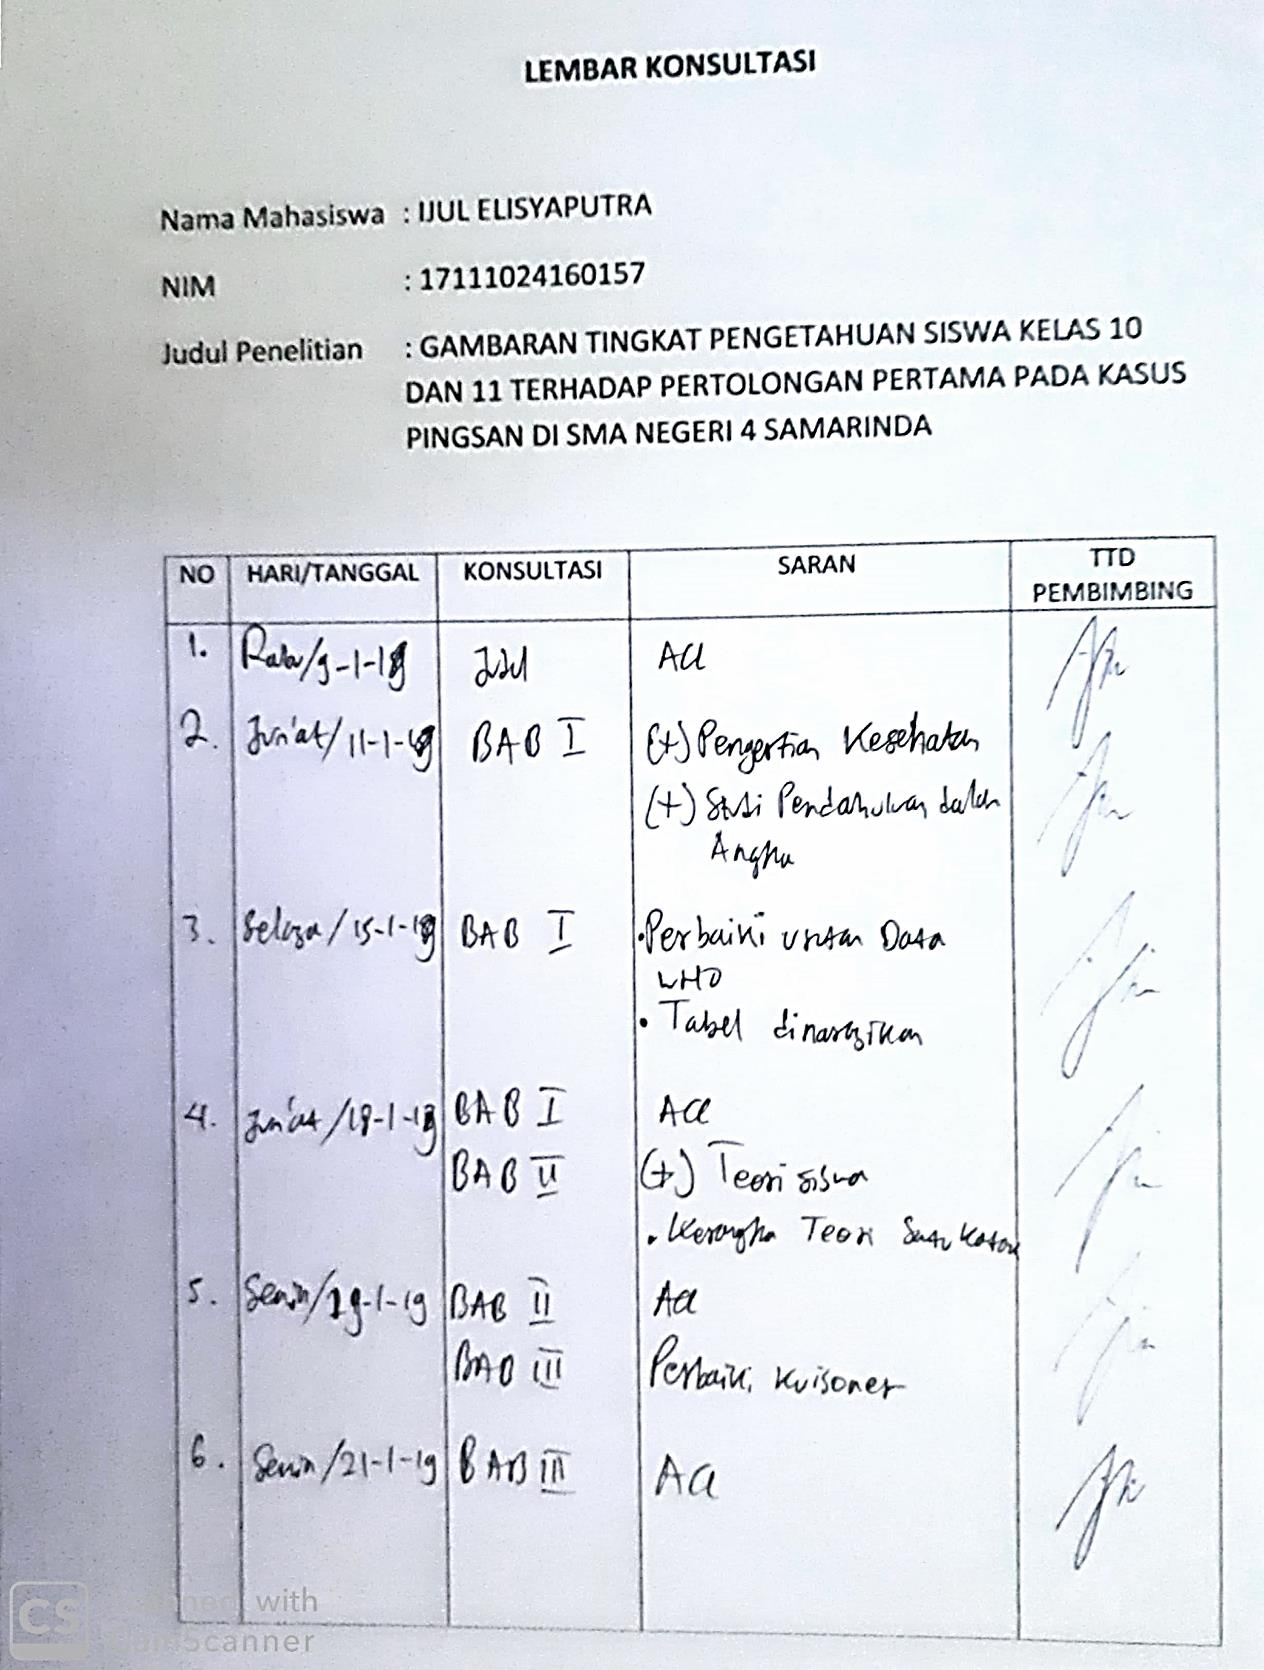 LEMBAR KONSULTASI
Nama Mahasiswa : IJUL ELISYAPUTRA
NIM : 17111024160157
Judul Penelitian : GAMBARAN TINGKAT PENGETAHUAN SISWA KELAS 10
DAN 11 TERHADAP PERTOLONGAN PERTAMA PADA KASUS
PINGSAN DI SMA NEGERI 4 SAMARINDA
NO HARI/TANGGAL KONSULTASI SARAN TTD
PEMBIMBING
1. Rabu/9-1-19 Judul Acc
2. Jum'at/11-1-19 BAB I (+) Pengertian Kesehatan
(+) Studi Pendahuluan dalam
Angka
3. Selasa/15-1-19 BAB I • Perbaiki urutan Data
WHO
• Tabel dinarasikan
4. Jum'at/18-1-19 BAB I Acc
BAB II (+) Teori siswa
• Kerangka Teori
5. Senin/ BAB II Acc
BAB III Perbaiki kuisoner
6. Senin/21-1-19 BAB III Acc
CS Scanned with
CamScanner